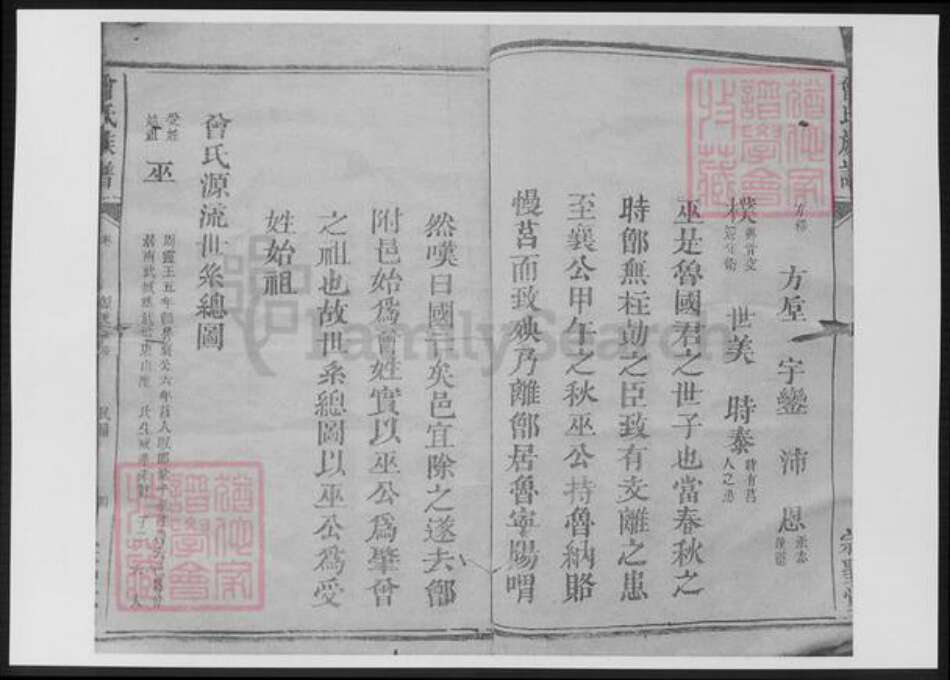 曾氏族譜
方垕 宇鑾 沛恩
樸 世美 時泰 時有莒人之患
巫是魯國君之世子也當春秋之
時鄫無柱勍之臣致有支離之患
至襄公甲午之秋巫公持魯納賂
慢莒而致殃乃離鄫居魯寧陽喟
然嘆曰國亡矣邑宜除之遂去鄫
附邑始為曾姓實以巫公為肇曾
之祖也故世系總圖以巫公為受
姓始祖
曾氏源流世系總圖
受姓始祖 巫
曾氏族譜
猶他家譜學會收藏
猶他家譜學會收藏
FamilySearch